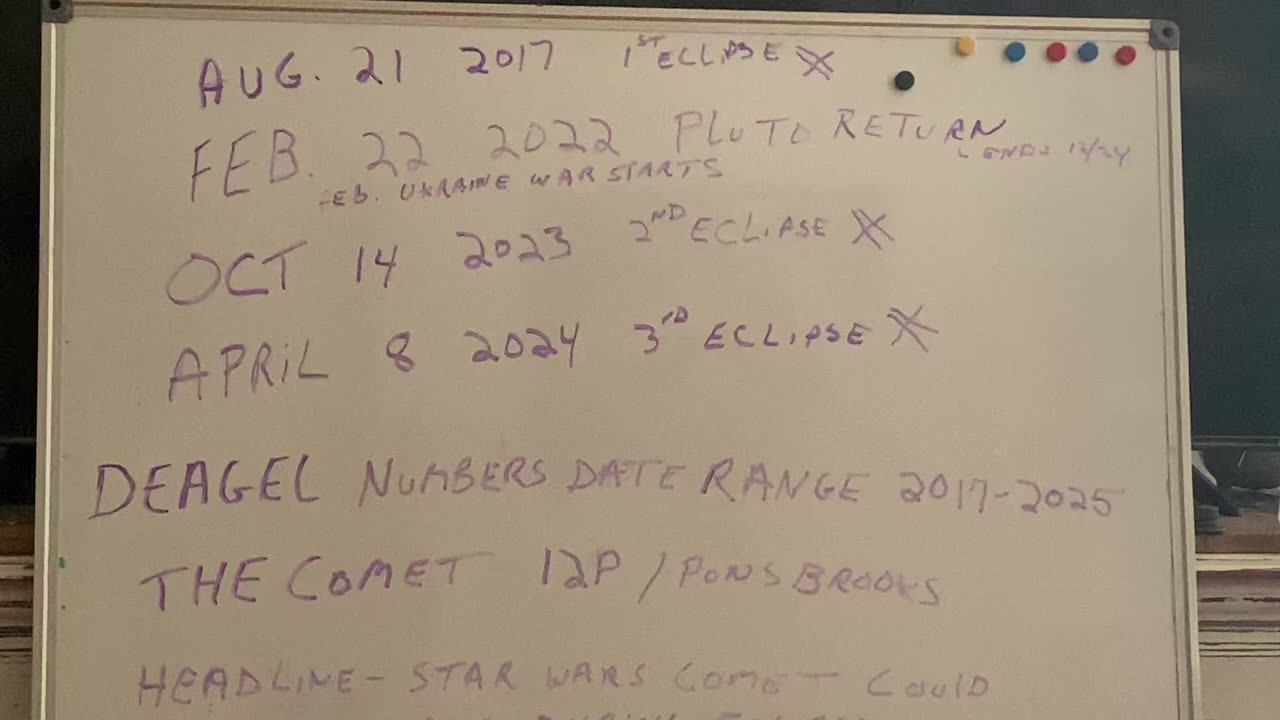 AUG. 21 2017 1ST ECLIPSE
FEB. 22 2022 PLUTO RETURN
ENDS 12/24
FEB. UKRAINE WAR STARTS
OCT 14 2023 2ND ECLIPSE
APRIL 8 2024 3RD ECLIPSE
DEAGEL NUMBERS DATE RANGE 2017-2025
THE COMET 12P / PONS BROOKS
HEADLINE - STAR WARS COMET COULD